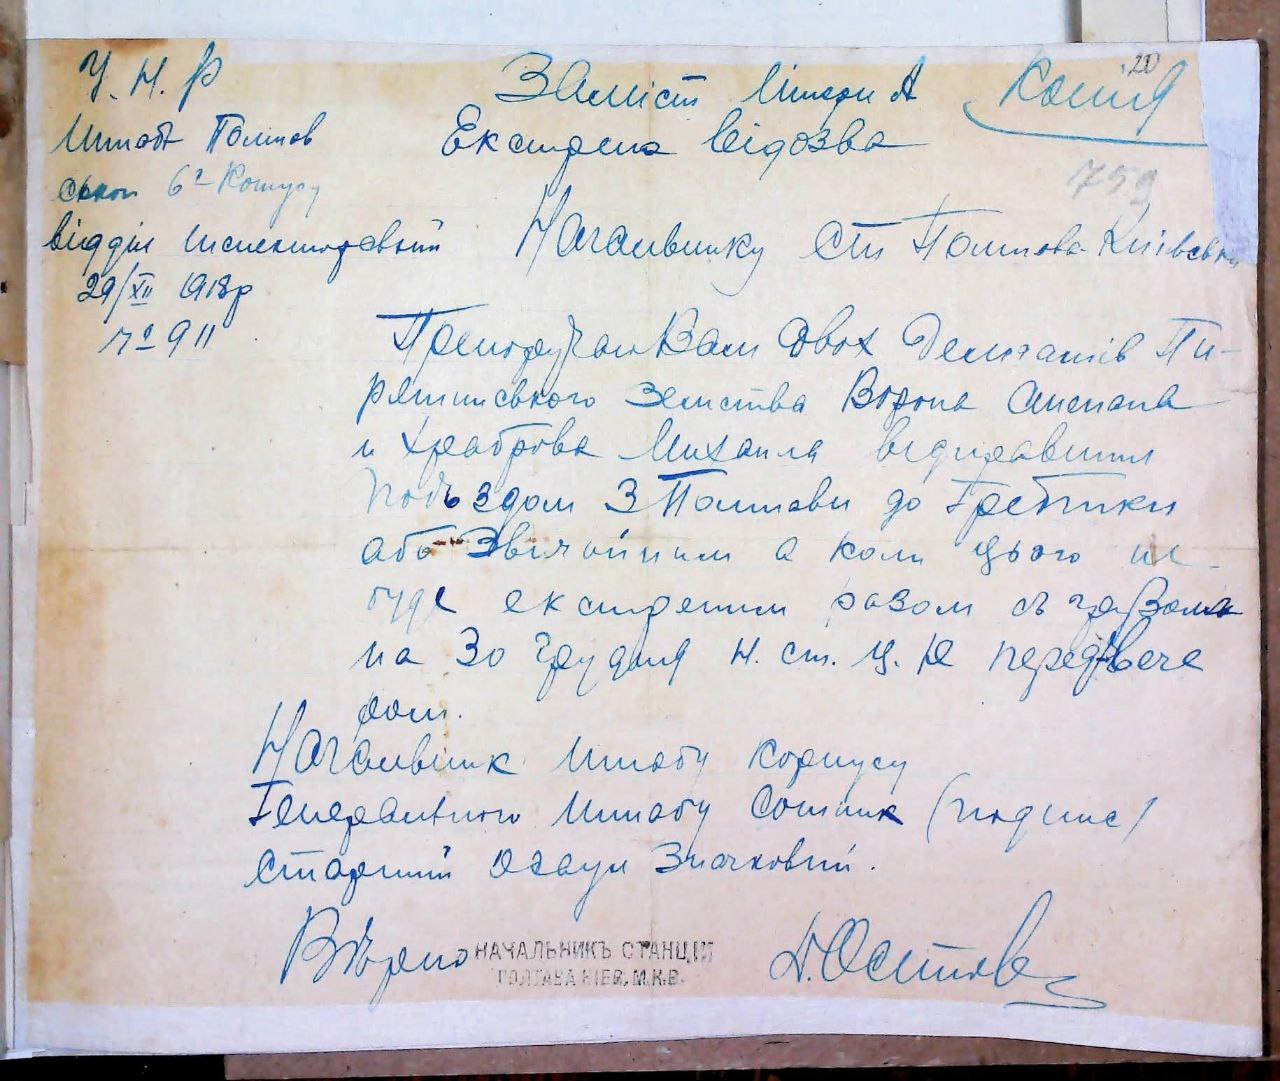 У. Н. Р
Штабъ Полтав
ськой 6го Корпусу
відділ Инспекторський
29/XII 1918р
№ 911
20
Копия
759
Замість Литери А
Екстрена Відозва
Начальнику Ст Полтава-Київськ
Препоручаю Вам двох Делегатів Пи-
рятинського Земства Ворона Степана
и Храброва Михаила відправити
Поъздом З Полтави до Гребінки
або Звичайним а коли цього не
буде екстреним разом съ
на 30 грудня н. ст. ц. р. перед вече
ром.
Начальник Штабу Корпусу
Генерального Штабу Сотник (подпис)
Старший Осаул Значковий.
Вѣрно
НАЧАЛЬНИКЪ СТАНЦІИ
ПОЛТАВА КІЕВ. М.К.В.